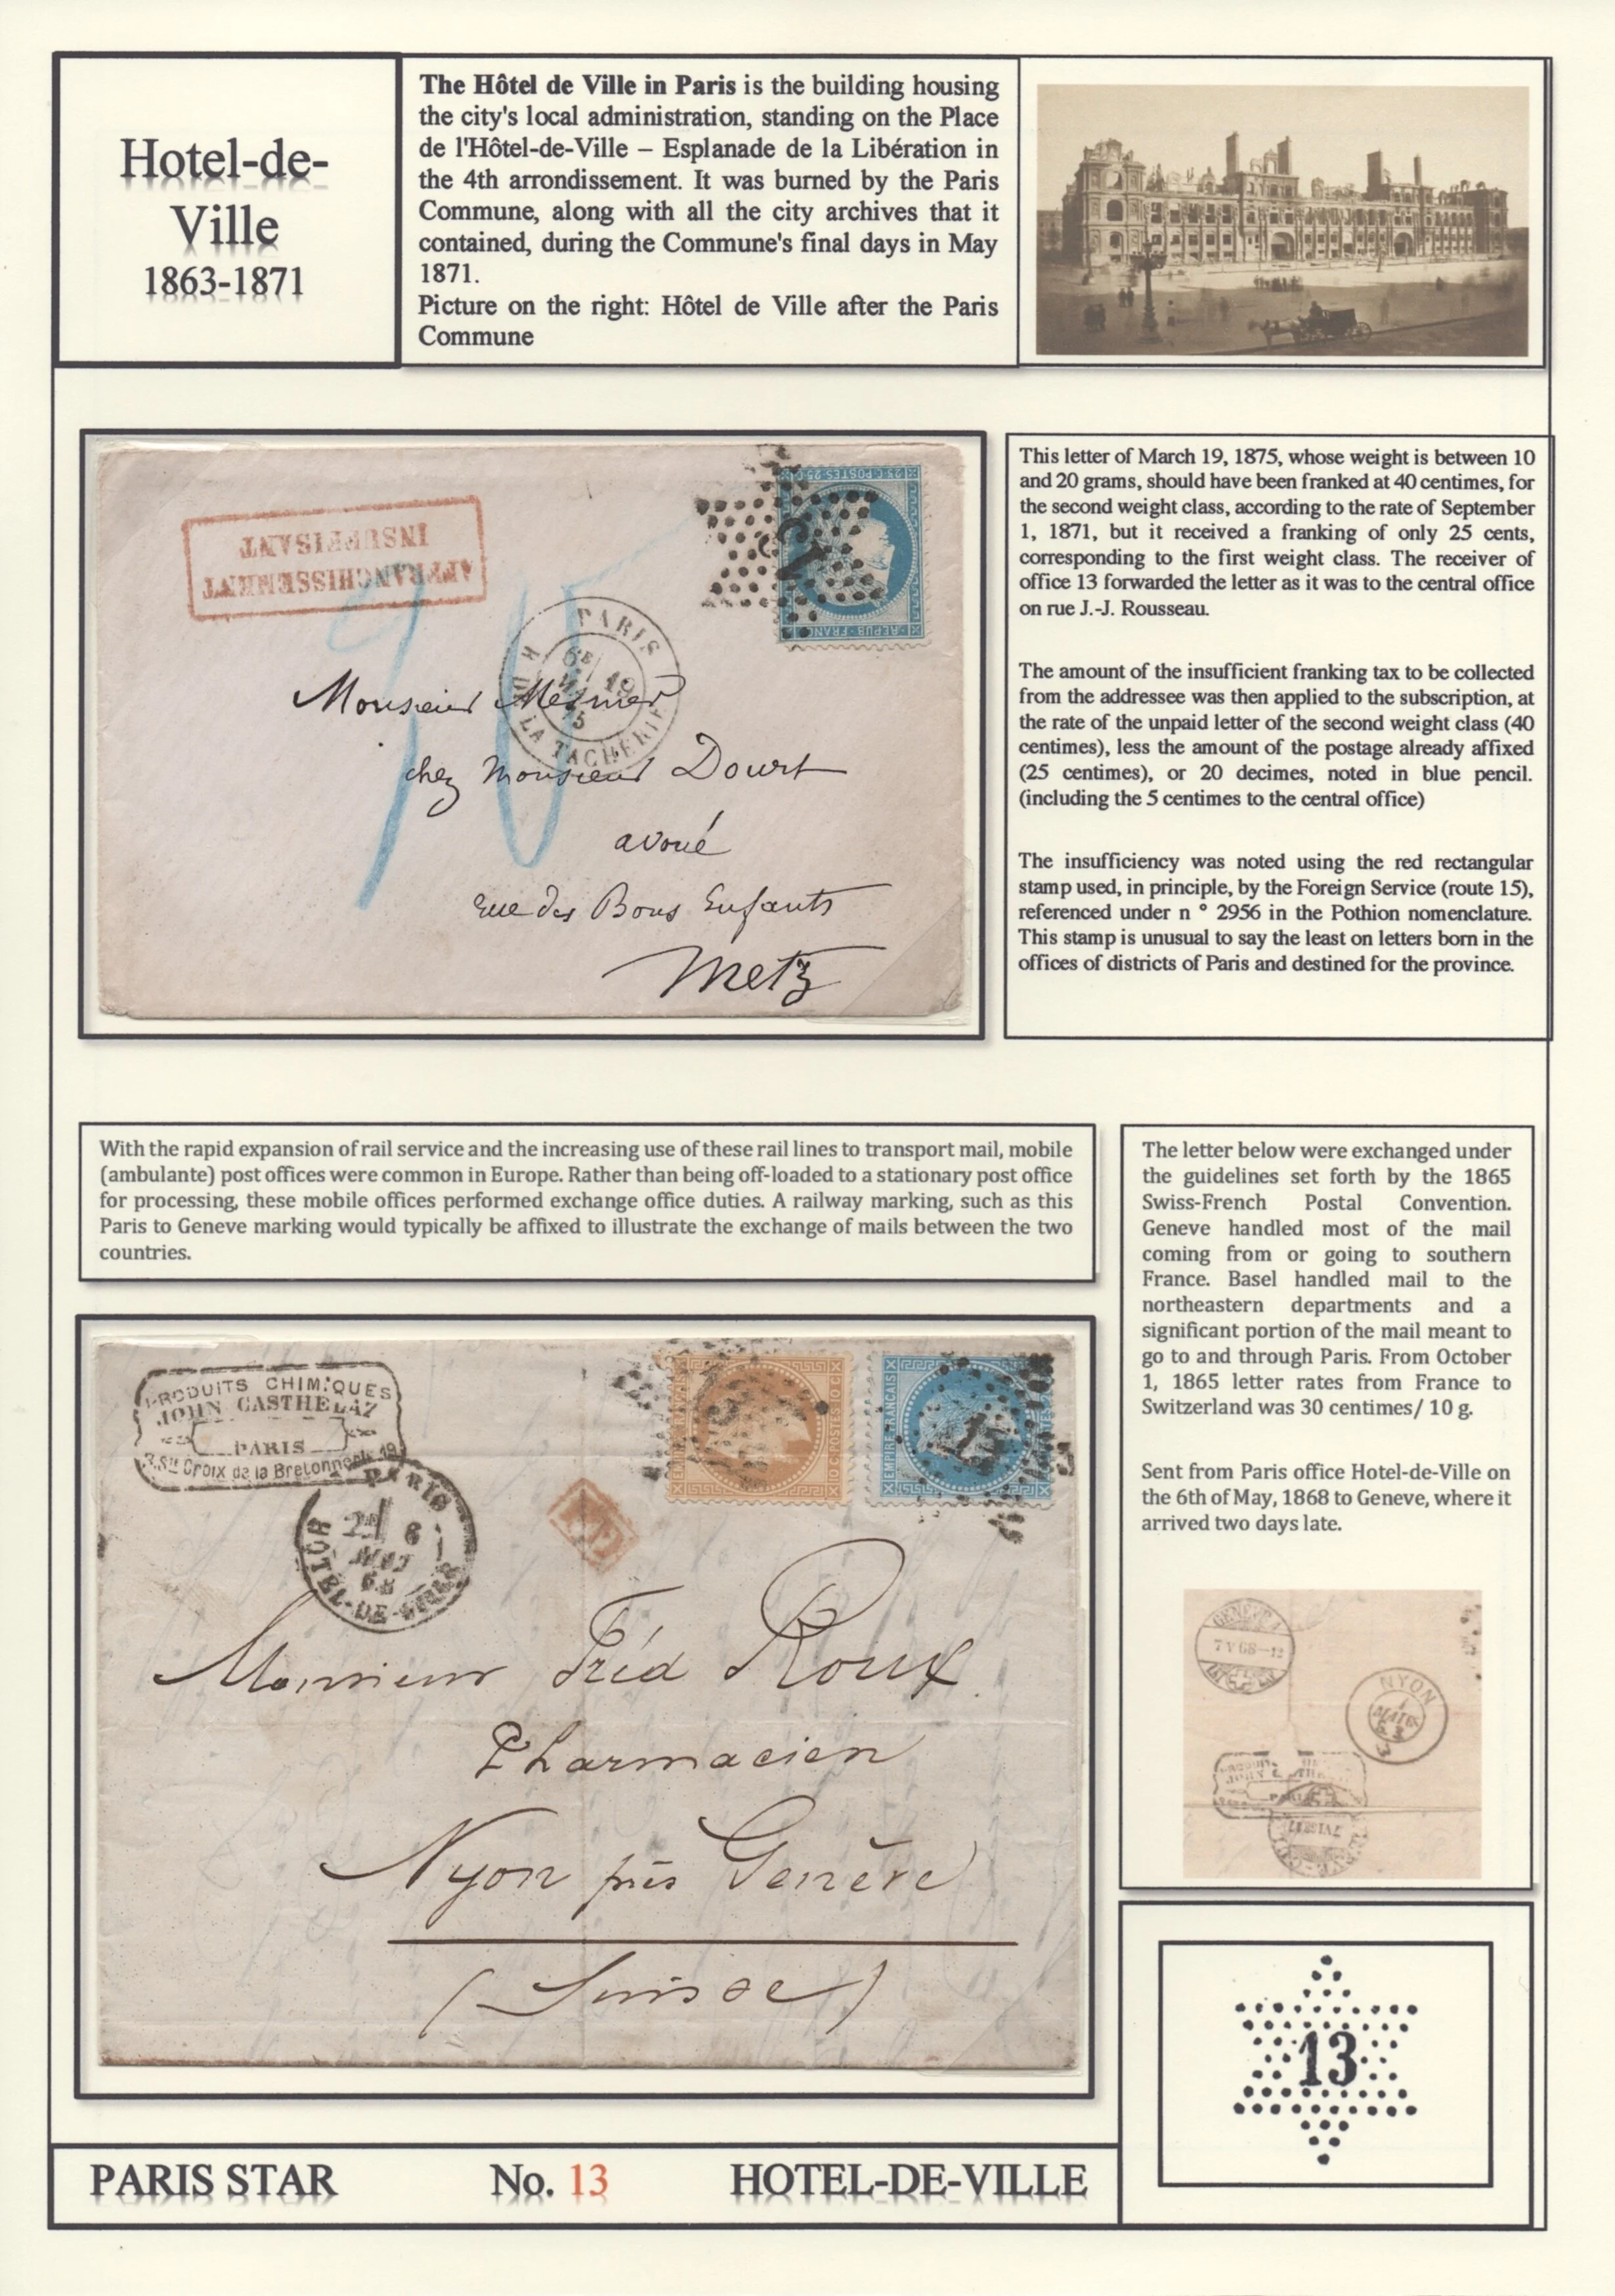 Hotel-de-
Ville
1863-1871
The Hôtel de Ville in Paris is the building housing
the city's local administration, standing on the Place
de l'Hôtel-de-Ville – Esplanade de la Libération in
the 4th arrondissement. It was burned by the Paris
Commune, along with all the city archives that it
contained, during the Commune's final days in May
1871.
Picture on the right: Hôtel de Ville after the Paris
Commune
AFFRANCHISSEMENT
INSUFFISANT
25 C POSTES 25 C
REPUB · FRANC
PARIS
6E
19
75
R DE LA TACHERIE
Monsieur Mesmer
chez Monsieur Dourt
avoué
rue des Bons Enfants
Metz
This letter of March 19, 1875, whose weight is between 10
and 20 grams, should have been franked at 40 centimes, for
the second weight class, according to the rate of September
1, 1871, but it received a franking of only 25 cents,
corresponding to the first weight class. The receiver of
office 13 forwarded the letter as it was to the central office
on rue J.-J. Rousseau.
The amount of the insufficient franking tax to be collected
from the addressee was then applied to the subscription, at
the rate of the unpaid letter of the second weight class (40
centimes), less the amount of the postage already affixed
(25 centimes), or 20 decimes, noted in blue pencil.
(including the 5 centimes to the central office)
The insufficiency was noted using the red rectangular
stamp used, in principle, by the Foreign Service (route 15),
referenced under n ° 2956 in the Pothion nomenclature.
This stamp is unusual to say the least on letters born in the
offices of districts of Paris and destined for the province.
With the rapid expansion of rail service and the increasing use of these rail lines to transport mail, mobile
(ambulante) post offices were common in Europe. Rather than being off-loaded to a stationary post office
for processing, these mobile offices performed exchange office duties. A railway marking, such as this
Paris to Geneve marking would typically be affixed to illustrate the exchange of mails between the two
countries.
The letter below were exchanged under
the guidelines set forth by the 1865
Swiss-French Postal Convention.
Geneve handled most of the mail
coming from or going to southern
France. Basel handled mail to the
northeastern departments and a
significant portion of the mail meant to
go to and through Paris. From October
1, 1865 letter rates from France to
Switzerland was 30 centimes/ 10 g.
Sent from Paris office Hotel-de-Ville on
the 6th of May, 1868 to Geneve, where it
arrived two days late.
PRODUITS CHIMIQUES
JOHN CASTHELAZ
PARIS
R. Ste Croix de la Bretonnerie 19
PARIS
2E 6
MAI
68
HOTEL-DE-VILLE
PD
EMPIRE FRANÇAIS
10 C POSTES 10 C
EMPIRE FRANÇAIS
Monsieur Fréd Roux
Pharmacien
Nyon près Genève
(Suisse)
GENEVE
7 V 68–12
NYON
JOHN
PARIS
13
PARIS STAR No. 13 HOTEL-DE-VILLE